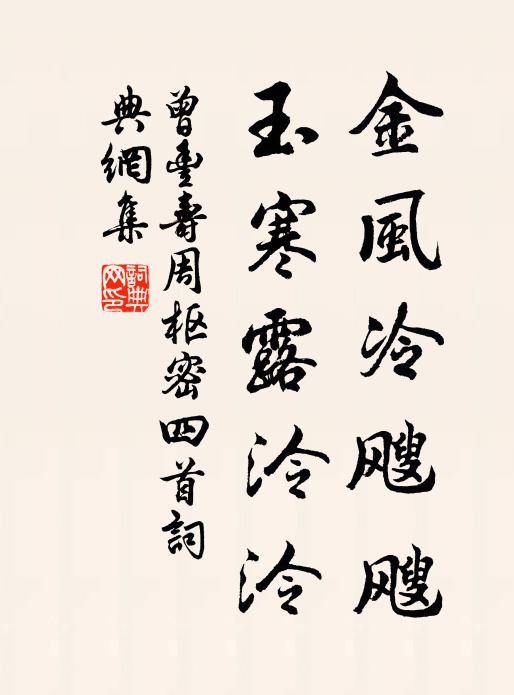 金風冷颼颼
玉寒露泠泠
曾豐壽周枢密四首詞
典網集
詞典網印